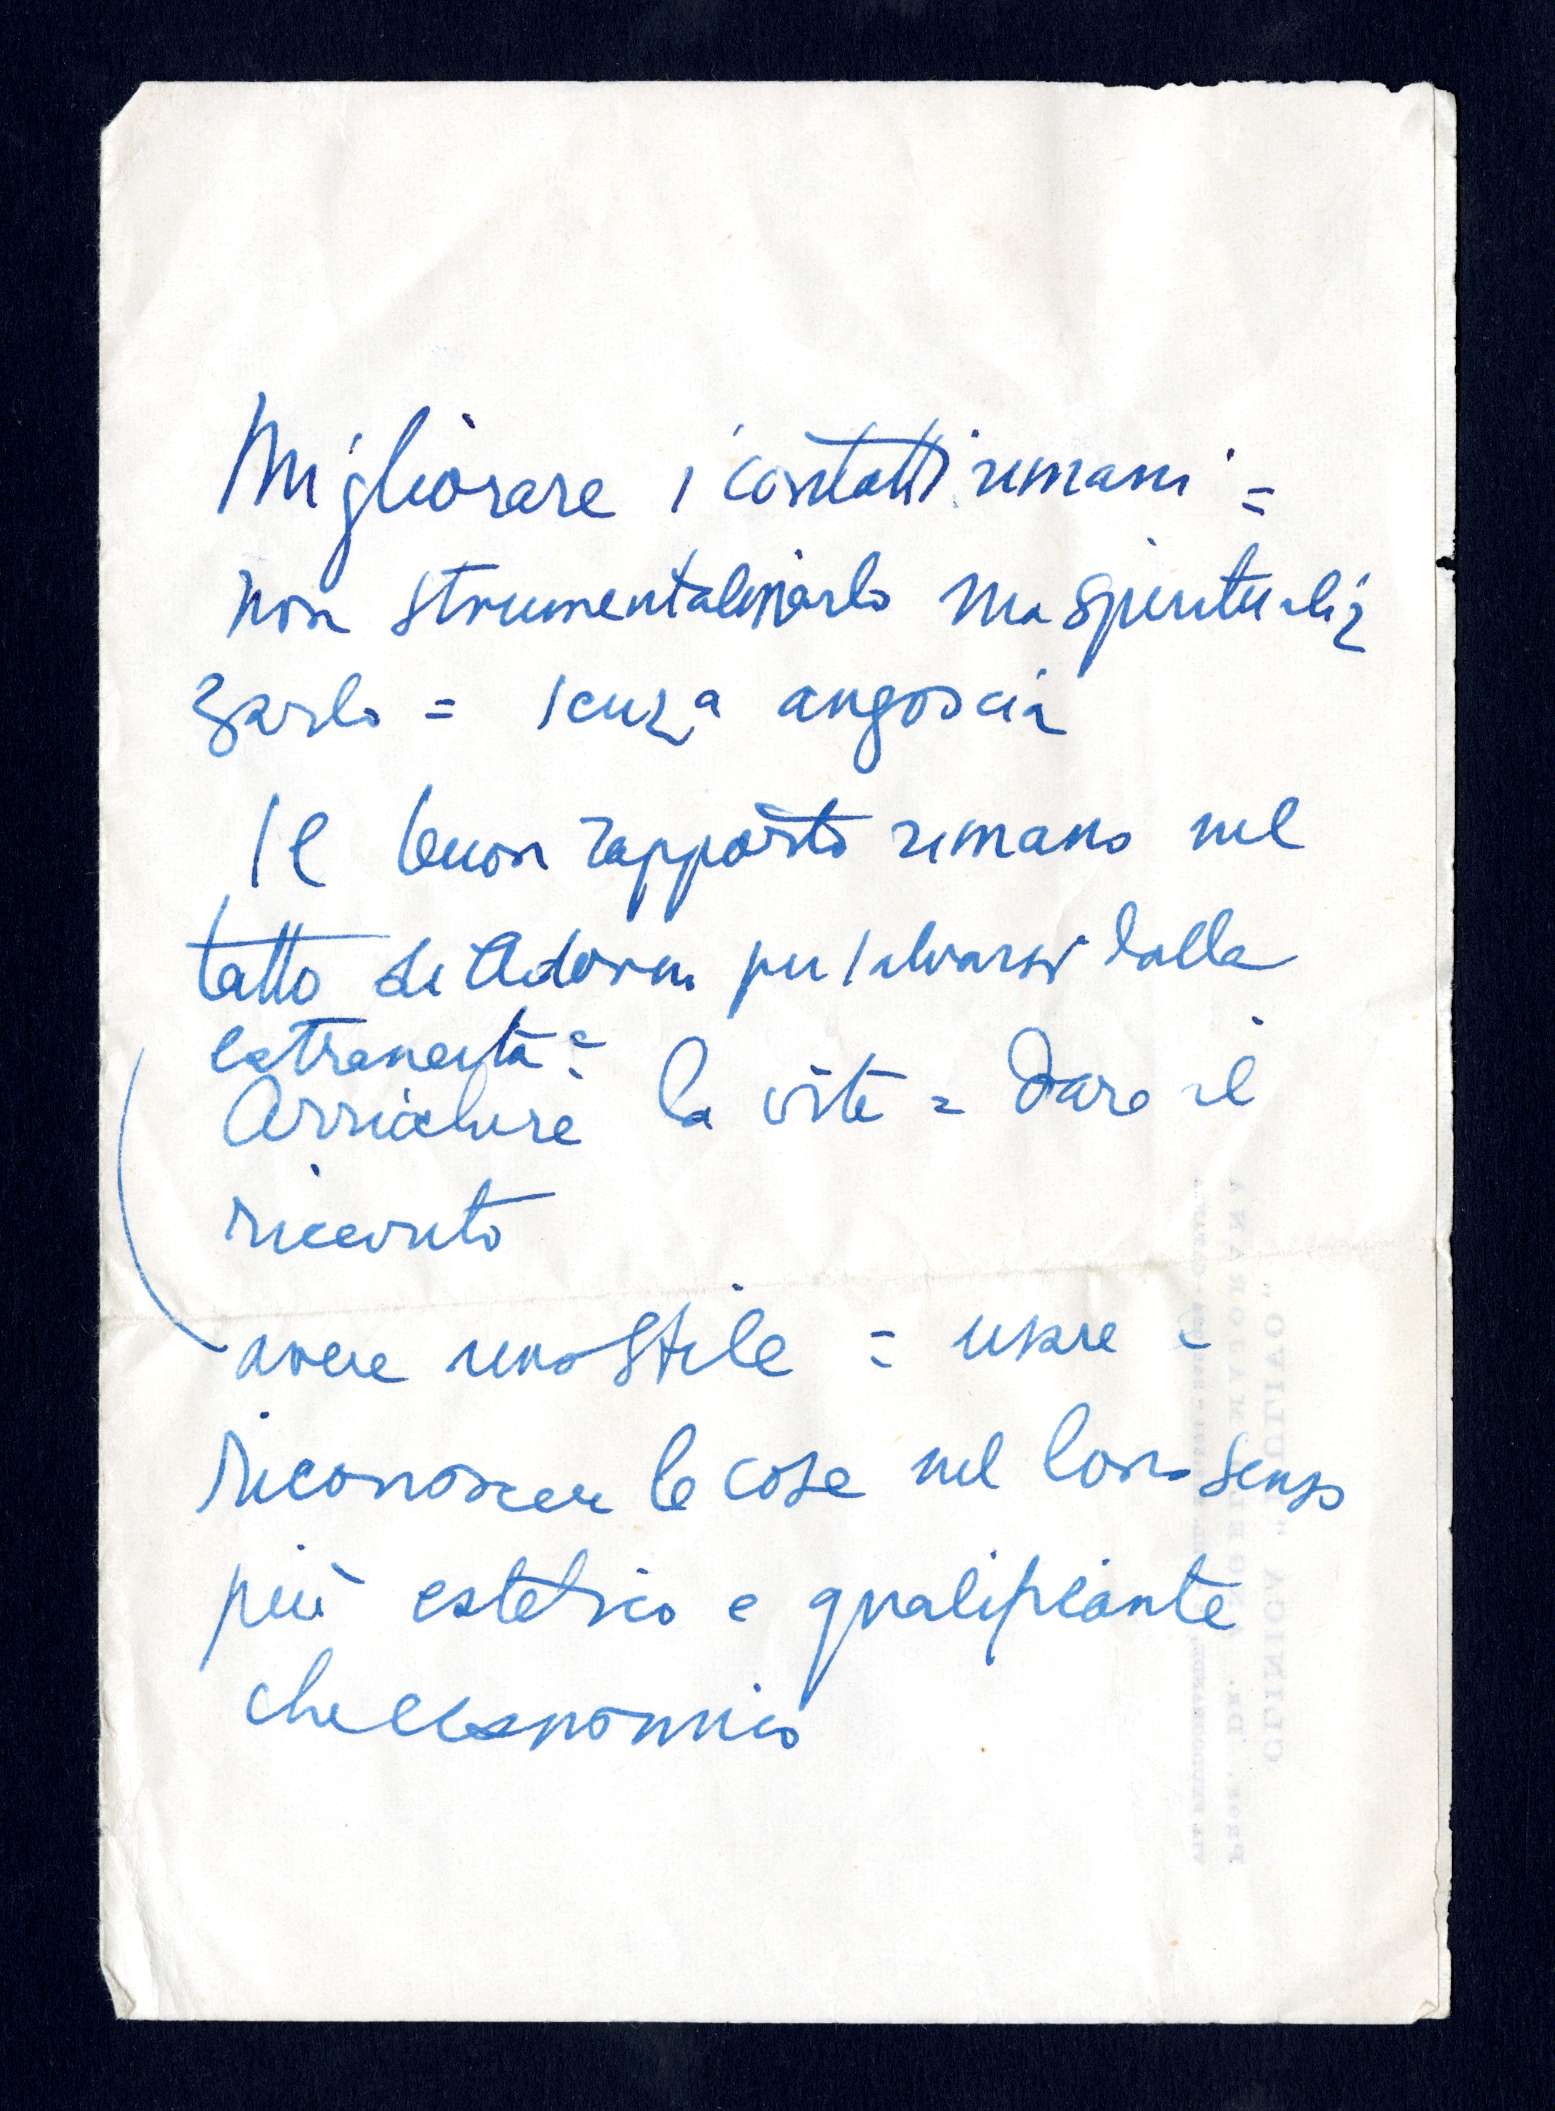 Migliorare i contatti umani =
non strumentalizzarlo ma spiritualiz
zarlo = senza angoscia
Il buon rapporto umano nel
tatto di Adorno per salvarsi dalla
estraneità =
Arricchire la vita = Dare il
ricevuto
avere uno stile = usare =
riconoscere le cose nel loro senso
più estetico e qualificante
che economico
CLINICA "